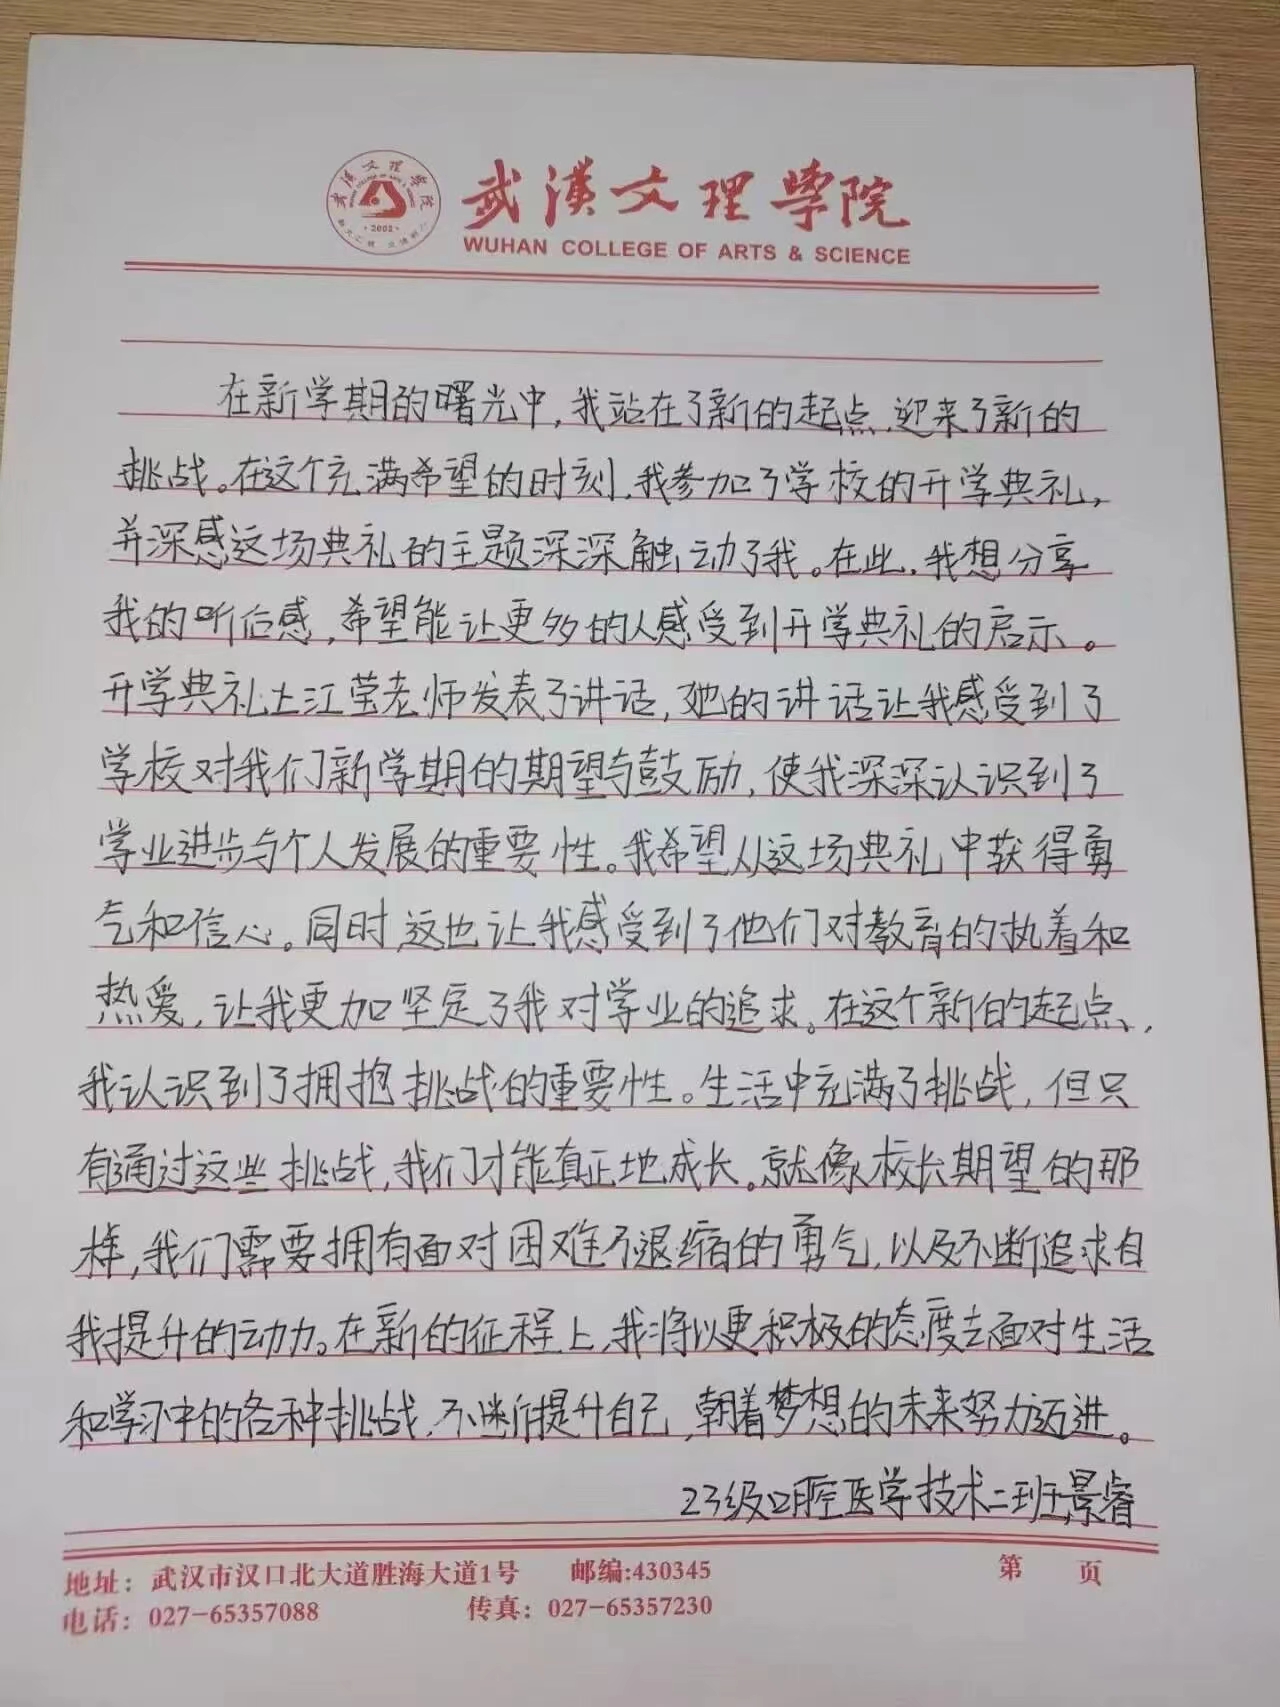 武漢文理學院
WUHAN COLLEGE OF ARTS & SCIENCE
武漢文理學院
WUHAN COLLEGE OF ARTS & SCIENCE
·2002·
在新学期的曙光中,我站在了新的起点,迎来了新的
挑战。在这个充满希望的时刻,我参加了学校的开学典礼,
并深感这场典礼的主题深深触动了我。在此,我想分享
我的听后感,希望能让更多的人感受到开学典礼的启示。
开学典礼上江莹老师发表了讲话,她的讲话让我感受到了
学校对我们新学期的期望与鼓励,使我深深认识到了
学业进步与个人发展的重要性。我希望从这场典礼中获得勇
气和信心。同时,这也让我感受到了他们对教育的执着和
热爱,让我更加坚定了我对学业的追求。在这个新的起点、,
我认识到了拥抱挑战的重要性。生活中充满了挑战,但只
有通过这些挑战,我们才能真正地成长。就像校长期望的那
样,我们需要拥有面对困难不退缩的勇气,以及不断追求自
我提升的动力。在新的征程上,我将以更积极的态度去面对生活
和学习中的各种挑战,不断提升自己,朝着梦想的未来努力迈进。
23级口腔医学技术二班景睿
地址：武汉市汉口北大道胜海大道1号 邮编:430345 第 页
电话：027-65357088 传真：027-65357230